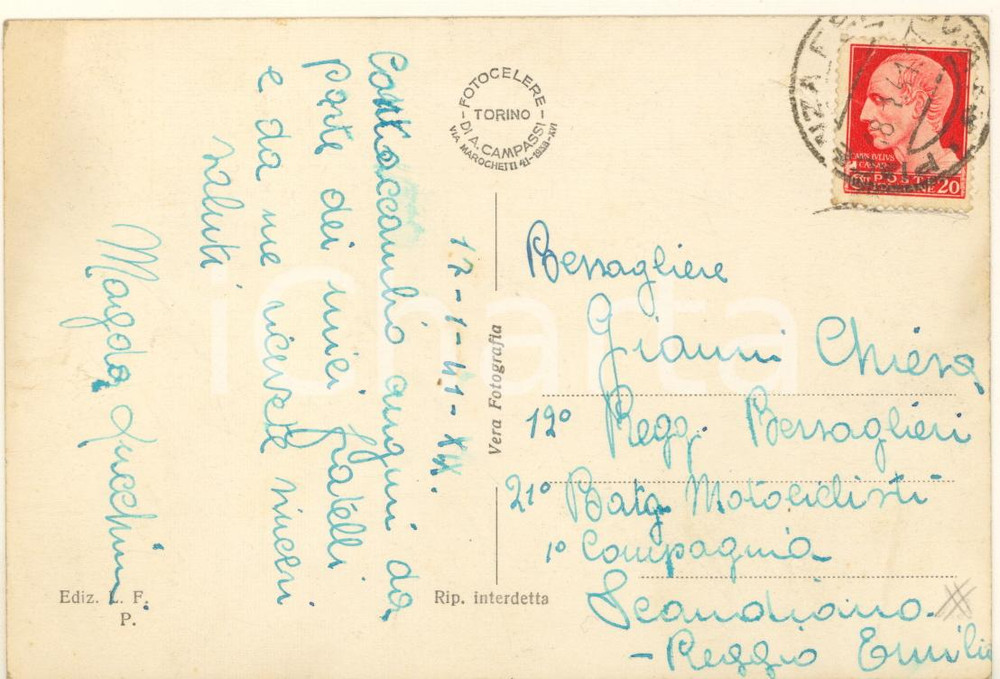 12-1-41-XIX.
Contraccambio auguri da
parte dei miei fratelli
e da me ricevete sinceri
saluti
Magda Zucchini
FOTOCELERE
TORINO
DI A. CAMPASSI
VIA MAROCHETTI 41-1938-XVI
Vera Fotografia
Ediz. L. F.
P.
Rip. interdetta
POSTE
20
Bersagliere
Gianni Chiesa
12° Regg. Bersaglieri
21° Batg Motociclisti
1° Compagnia
Scandiano
-Reggio Emilia
iCharta